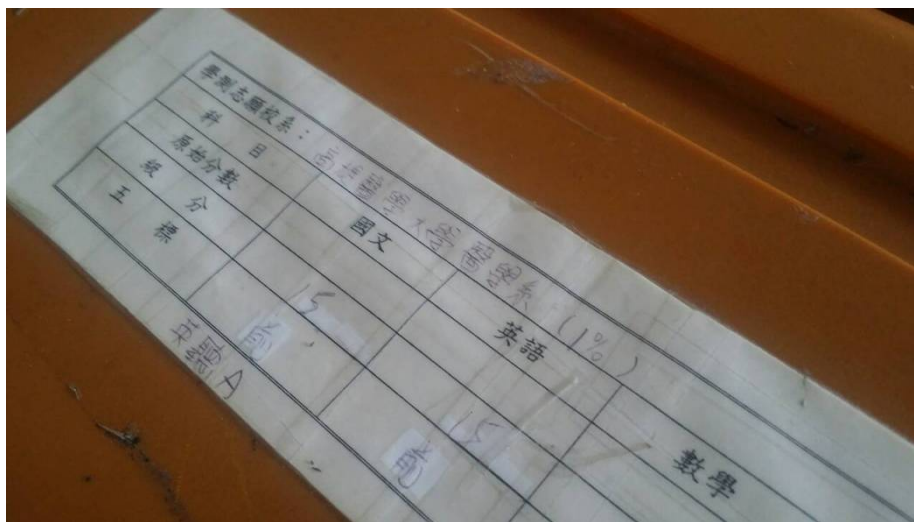 學測志願校系： 大學 系 (1%)
科目 國文 英語 數學
原始分數
級分 15 15
五標
英聽A